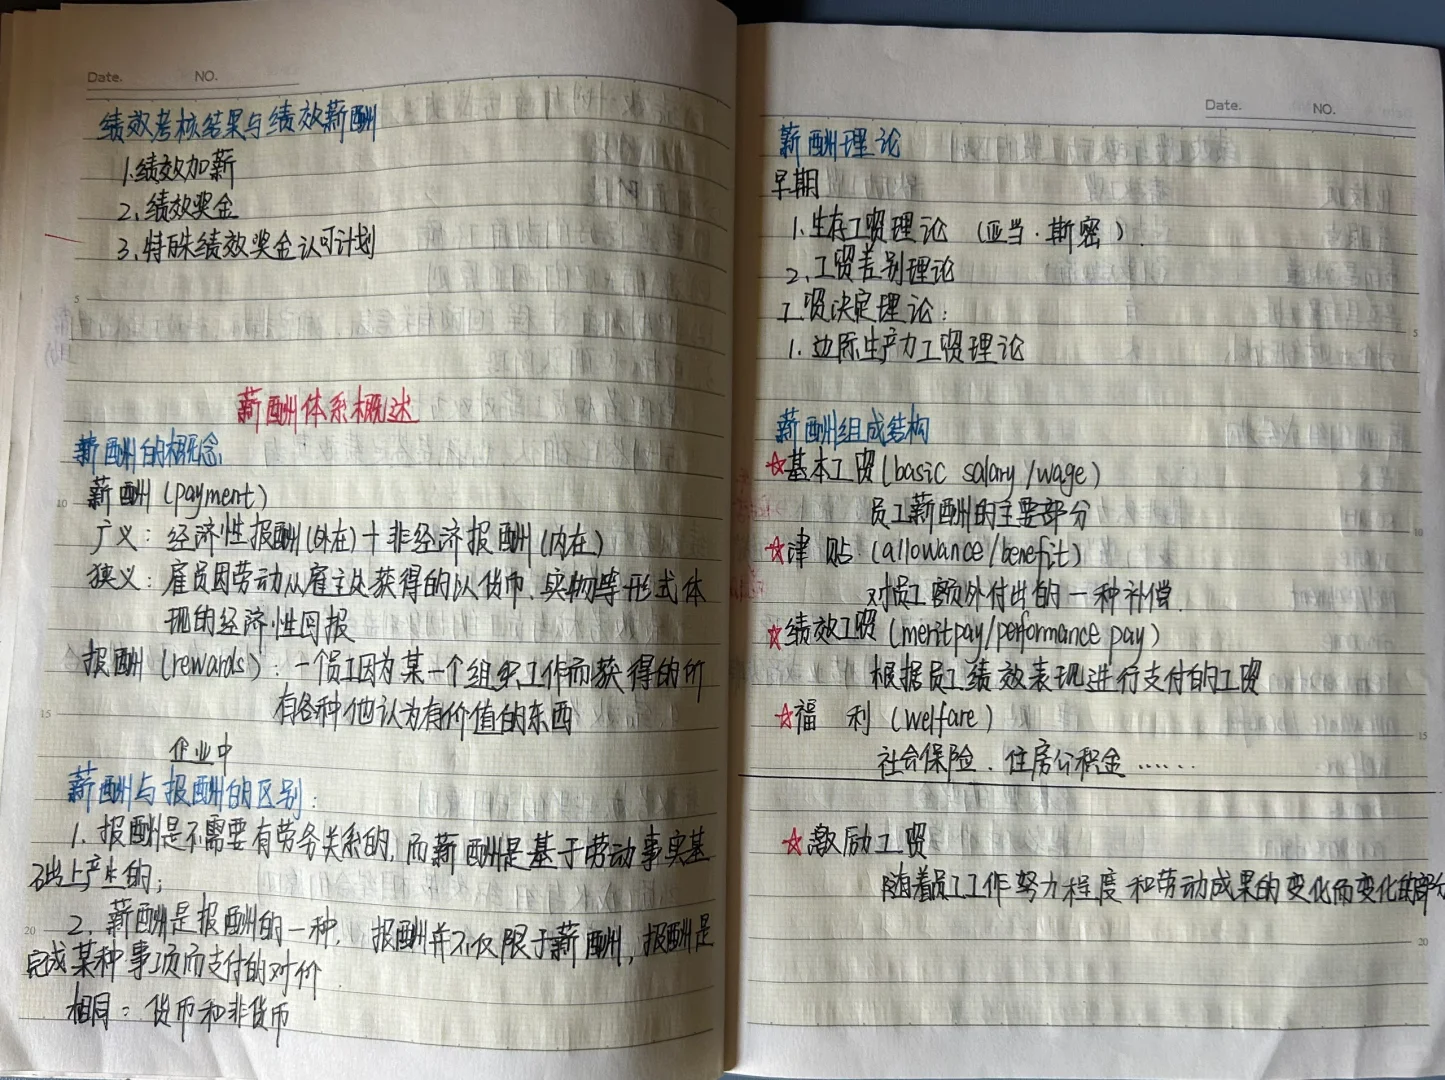 Date. NO.
绩效考核结果与绩效薪酬
1.绩效加薪
2.绩效奖金
3.特殊绩效奖金认可计划
5
薪酬体系概述
薪酬的概念
薪酬(payment)
10
广义：经济性报酬(外在)+非经济报酬(内在)
狭义：雇员因劳动从雇主处获得的以货币、实物等形式体
现的经济性回报
报酬(rewards)：一个员工因为某一个组织工作而获得的所
有各种他认为有价值的东西
15
企业中
薪酬与报酬的区别：
1.报酬是不需要有劳务关系的,而薪酬是基于劳动事实基
础上产生的；
2.薪酬是报酬的一种,报酬并不仅限于薪酬,报酬是
20
完成某种事项而支付的对价
相同：货币和非货币
Date. NO.
薪酬理论
早期
1.生存工资理论 (亚当·斯密)
2.工资差别理论
工资决定理论：
5
1.边际生产力工资理论
薪酬组成结构
☆基本工资(basic salary/wage)
员工薪酬的主要部分
10
☆津 贴 (allowance/benefit)
对员工额外付出的一种补偿
☆绩效工资(meritpay/performance pay)
根据员工绩效表现进行支付的工资
☆福 利 (welfare)
15
社会保险、住房公积金……
☆激励工资
随着员工工作努力程度和劳动成果的变化而变化的部分
20